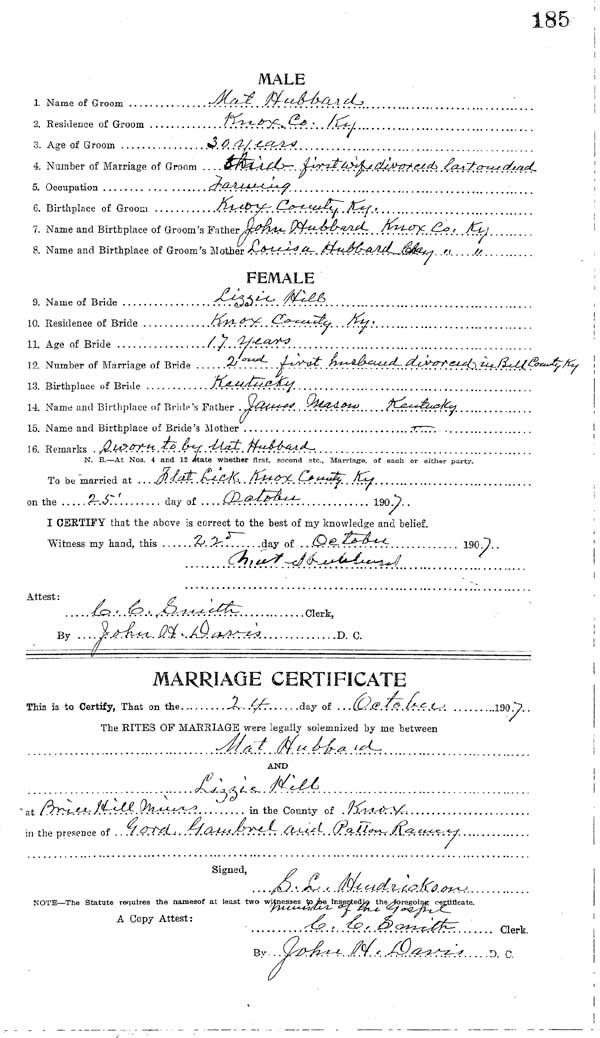 185
MALE
1. Name of Groom Mat Hubbard
2. Residence of Groom Knox Co. Ky
3. Age of Groom 30 years
4. Number of Marriage of Groom third first wife divorced last one dead
5. Occupation Farming
6. Birthplace of Groom Knox County, Ky.
7. Name and Birthplace of Groom's Father John Hubbard Knox Co. Ky
8. Name and Birthplace of Groom's Mother Louisa Hubbard Clay " "
FEMALE
9. Name of Bride Lizzie Hill
10. Residence of Bride Knox County Ky.
11. Age of Bride 17 years
12. Number of Marriage of Bride 2ond first husband divorced in Bell County Ky
13. Birthplace of Bride Kentucky
14. Name and Birthplace of Bride's Father James Mason Kentucky
15. Name and Birthplace of Bride's Mother
16. Remarks Sworn to by Mat Hubbard
N. B.—At Nos. 4 and 12 state whether first, second etc., Marriage, of each or either party.
To be married at Flat Lick Knox County Ky
on the 25 day of October 1907
I CERTIFY that the above is correct to the best of my knowledge and belief.
Witness my hand, this 22 day of October 1907
Mat Hubbard
Attest:
C. C. Smith Clerk,
By John H. Davis D. C.
MARRIAGE CERTIFICATE
This is to Certify, That on the 24 day of October 1907
The RITES OF MARRIAGE were legally solemnized by me between
Mat Hubbard
AND
Lizzie Hill
at Brier Hill Mines in the County of Knox
in the presence of Gord Gambrel and Patton Ramey
Signed,
S. L. Hendrickson
NOTE—The Statute requires the names of at least two witnesses to be inserted in the foregoing certificate.
minister of the Gospel
A Copy Attest:
C. C. Smith Clerk.
By John H. Davis D. C.